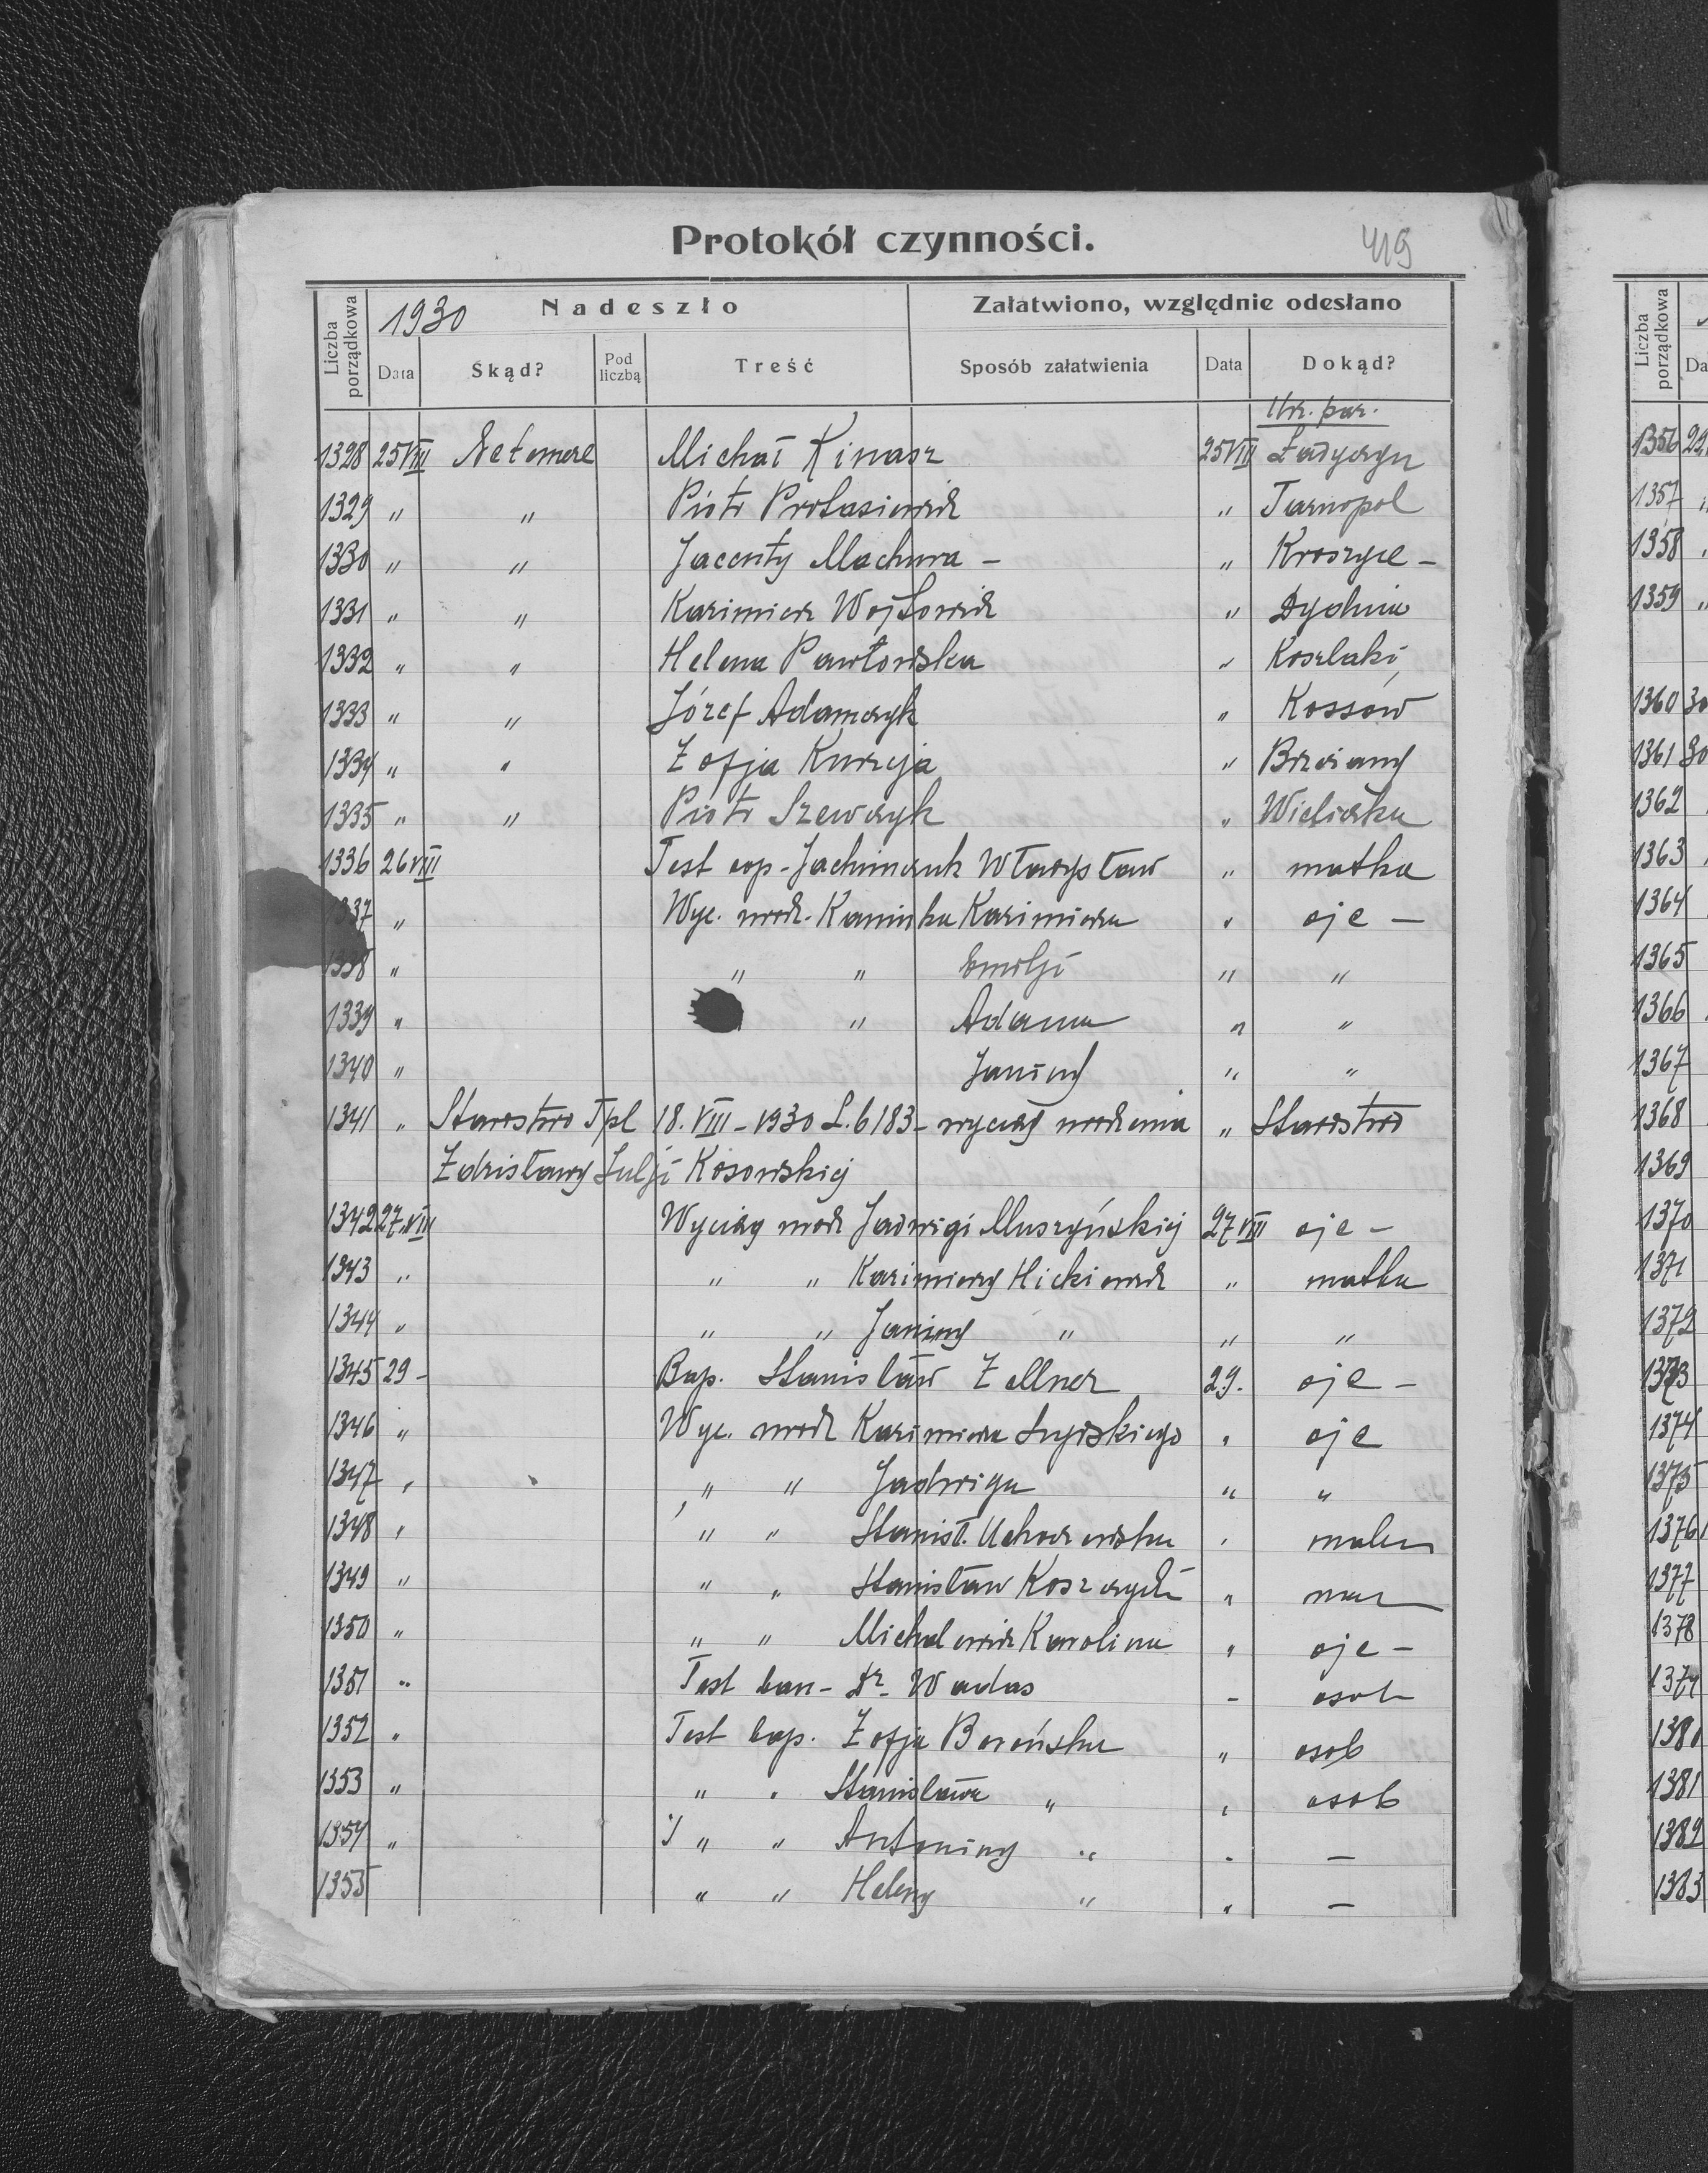 Protokół czynności.
419
Liczba porządkowa
1930 Nadeszło
Załatwiono, względnie odesłano
Data Skąd? Pod liczbą Treść Sposób załatwienia Data Dokąd?
Urz. par.
1328 25 VIII Ne temere Michał Kinasz 25 VIII
1329 " " Piotr Protasiewicz " Tarnopol
1330 " " Jacenty Machura - " Kroszyce -
1331 " " Kazimierz Wojtowicz " Dydnia
1332 " " Helena Pawłowska " Koszlaki
1333 " " Józef Adamczyk " Kossów
1334 " " Zofja Kurzeja " Brzeżany
1335 " " Piotr Szewczyk " Wieliczka
1336 26 VIII Test bap - Jachimczuk Władysław " matka
37 " Wyc. urodz. Kaminka Kazimierza " ojc -
1338 " " " Emilji " "
1339 " " Adama " "
1340 " Janiny " "
1341 " Starostwo Tpl 18. VIII - 1930 L. 6183 - wyciąg urodzenia " Starostwo
Zdzisławy Julji Kosowskiej
1342 27.VIII Wyciąg urodz Jadwigi Muszyńskiej 27 VIII ojc -
1343 " " " Kazimierz Hickiewicz " matka
1344 " " " Janiny " " "
1345 29 - Bap. Stanisław Zellner 29. ojc -
1346 " Wyc. urodz Kazimierza " ojc
1347 " " " Jadwiga " "
1348 " " " Stanisł. "
1349 " " " Stanisław "
1350 " " " Michalewicz Karolina " ojc -
1351 " Test ban - Dr. Wadas - osob
1352 " Test bap. Zofja Borońska " osob
1353 " " " Stanisława " " osob
1354 " " " Antoniny " " -
1355 " " Heleny " " -
Liczba porządkowa
Da
1356
1357
1358
1359
1360 30
1361 30
1362
1363
1364
1365
1366
1367
1368
1369
1370
1371
1372
1373
1374
1375
1376
1377
1378
1379
1380
1381
1382
1383